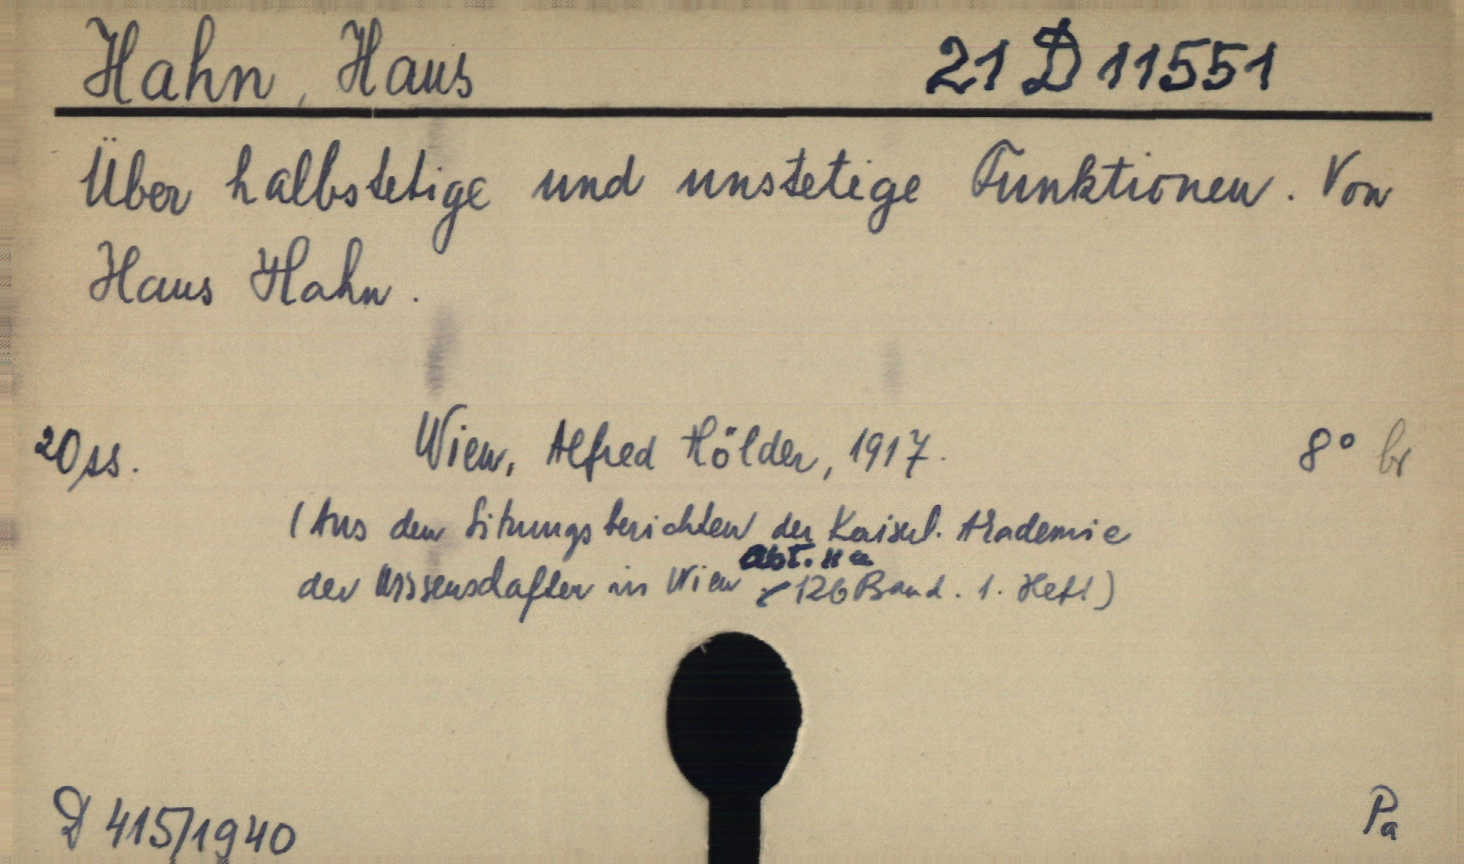 Hahn, Hans 21 D 11551
Über halbstetige und unstetige Funktionen. Von
Hans Hahn.
20 ss. Wien, Alfred Hölder, 1917. 8° br
(Aus den Sitzungsberichten der Kaiserl. Akademie
Abt. II a
der Wissenschaften in Wien 126 Band. 1. Heft)
D 415/1940 Pa